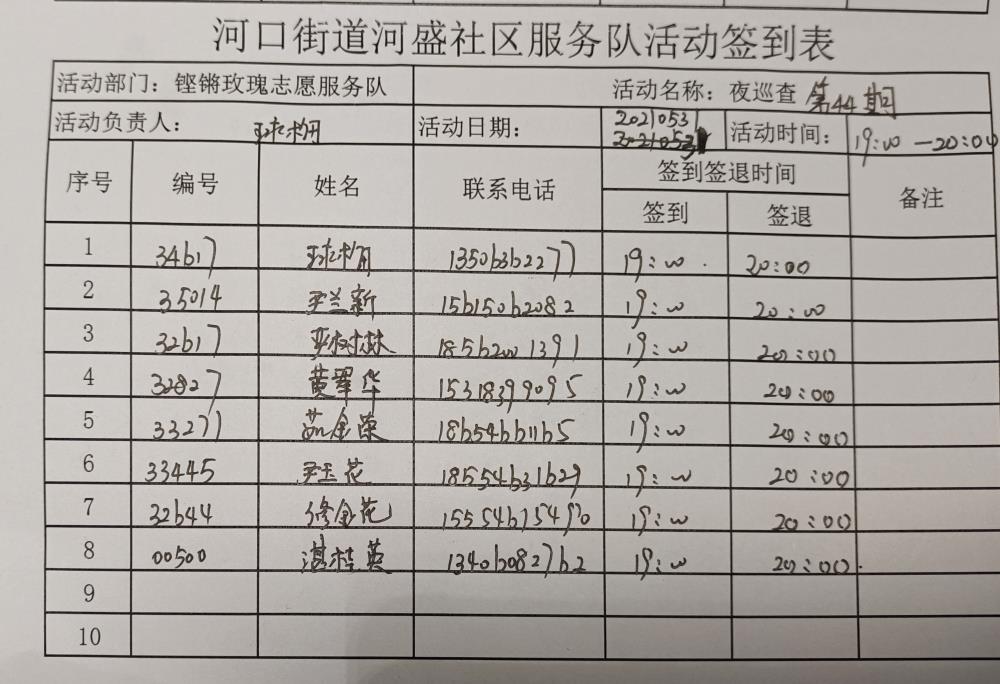 河口街道河盛社区服务队活动签到表
活动部门：铿锵玫瑰志愿服务队 活动名称：夜巡查 第44期
活动负责人： 活动日期： 20210531 20210531 活动时间： 19:00—20:00
序号 编号 姓名 联系电话 签到签退时间 备注
签到 签退
1 34617 13506362277 19:00 20:00
2 35014 尹兰新 15615062082 19:00 20:00
3 32617 树林 18562001391 19:00 20:00
4 32827 黄翠华 15318399095 19:00 20:00
5 33271 茹金荣 18654661165 19:00 20:00
6 33445 尹玉花 18554631629 19:00 20:00
7 32644 修金花 15554675490 19:00 20:00
8 00500 湛桂英 13406082762 19:00 20:00
9
10